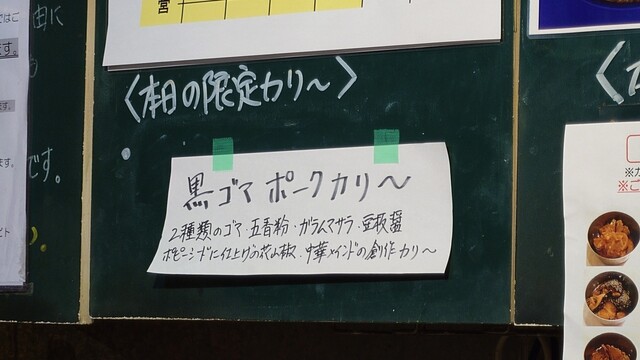 営
〈本日の限定カリ～〉
黒ゴマ ポークカリ～
2種類のゴマ・五香粉・ガラムマサラ・豆板醤
ポピーシードに仕上げの花山椒、中華メインドの創作カリ～
ます。
です。